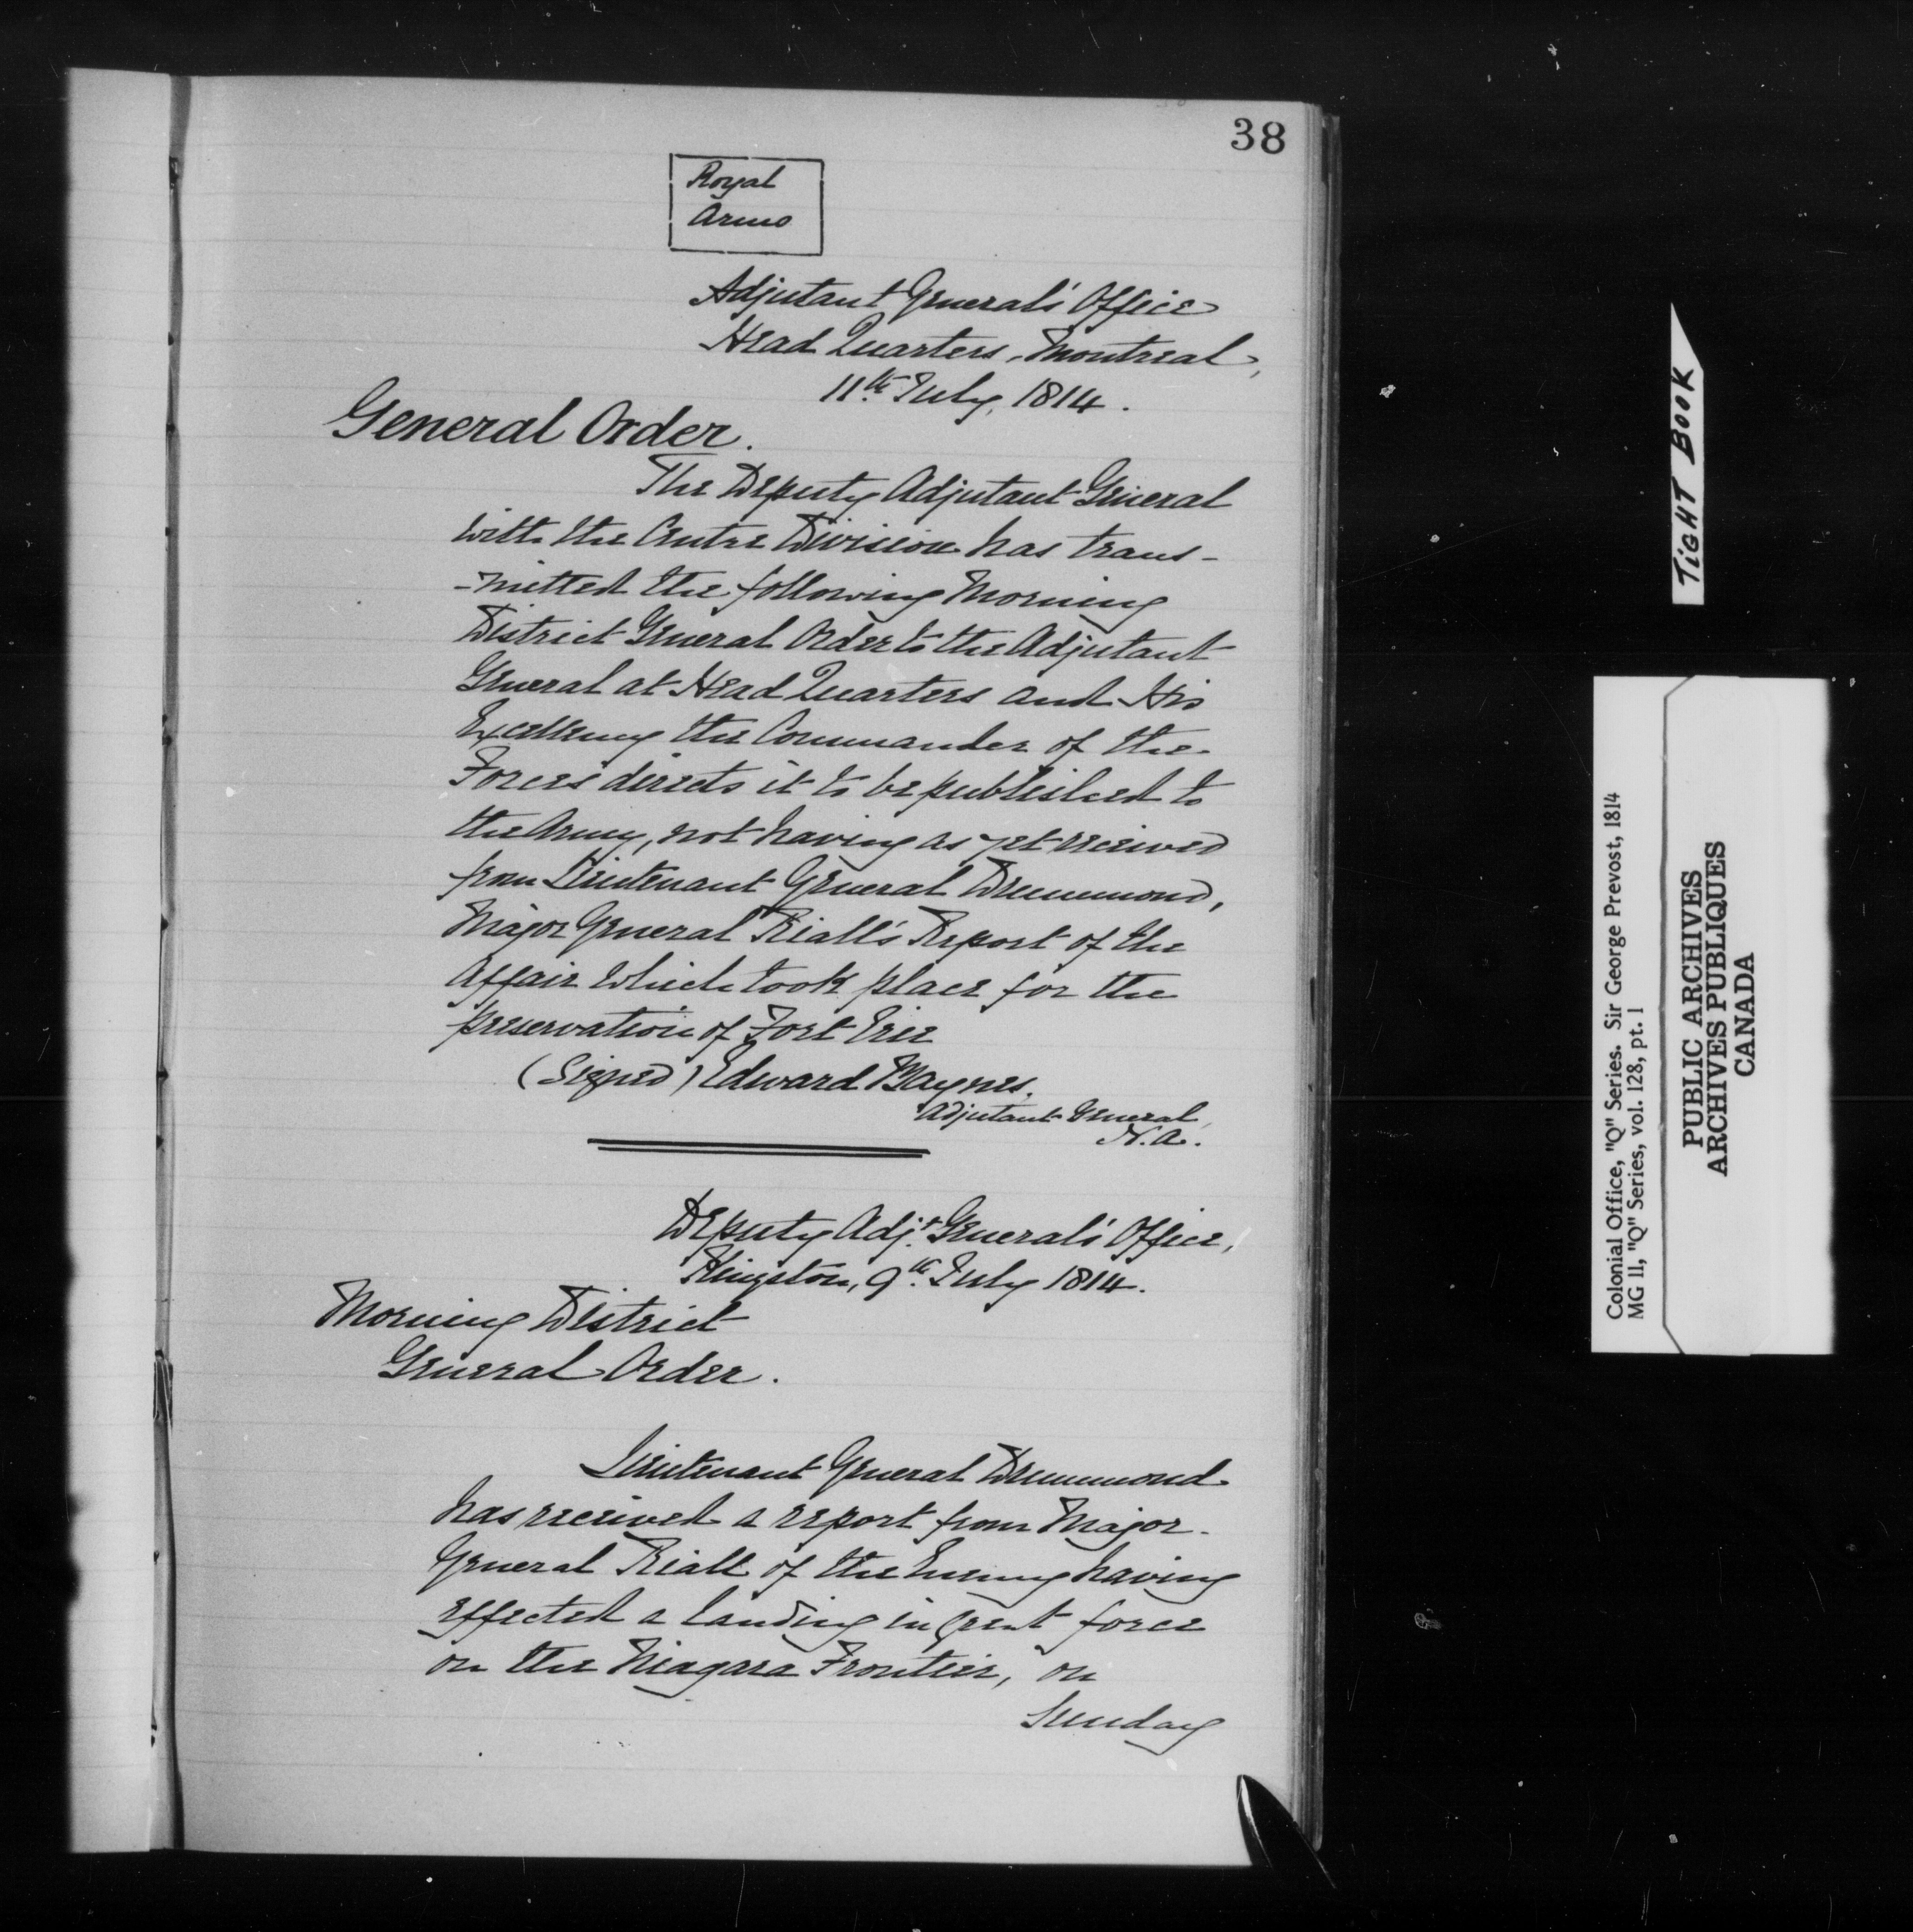 38
Royal
Arms
Adjutant General's Office
Head Quarters, Montreal,
11th July, 1814.
General Order.
The Deputy Adjutant General
with the Centre Division has trans-
-mitted the following Morning
District General Order to the Adjutant
General at Head Quarters and His
Excellency the Commander of the
Forces directs it to be published to
the Army, not having as yet received
from Lieutenant General Drummond,
Major General Riall's Report of the
affair which took place for the
preservation of Fort Erie
(Signed) Edward Baynes,
Adjutant General,
N.A.
Deputy Adjt. General's Office,
Kingston, 9th July 1814.
Morning District
General Order.
Lieutenant General Drummond
has received a report from Major-
General Riall of the Enemy having
effected a landing in great force
on the Niagara Frontier, on
Sunday
TIGHT BOOK
Colonial Office, "Q" Series. Sir George Prevost, 1814
MG 11, "Q" Series, vol. 128, pt. 1
PUBLIC ARCHIVES
ARCHIVES PUBLIQUES
CANADA